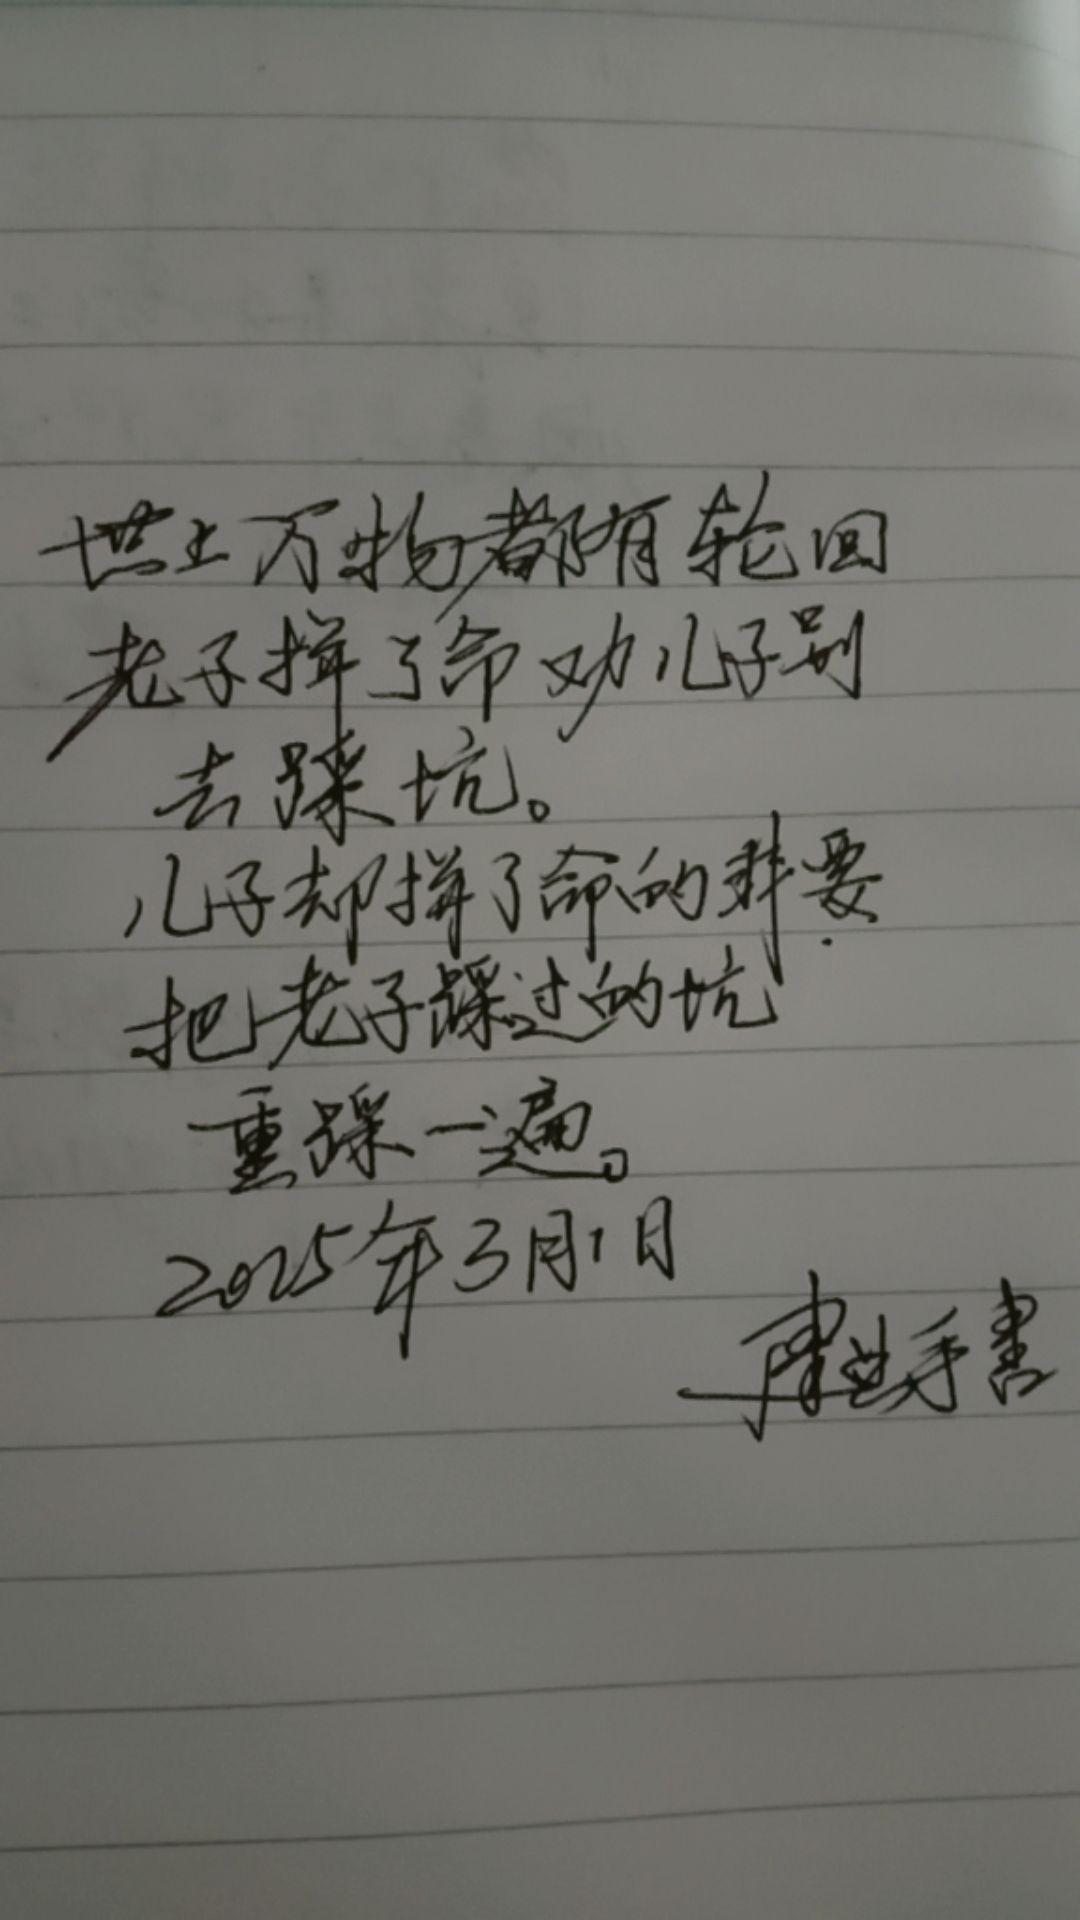 世上万物都有轮回
老子拼了命劝儿子别
去踩坑。
儿子却拼了命的非要
把老子踩过的坑
重踩一遍。
2025年3月1日
手书